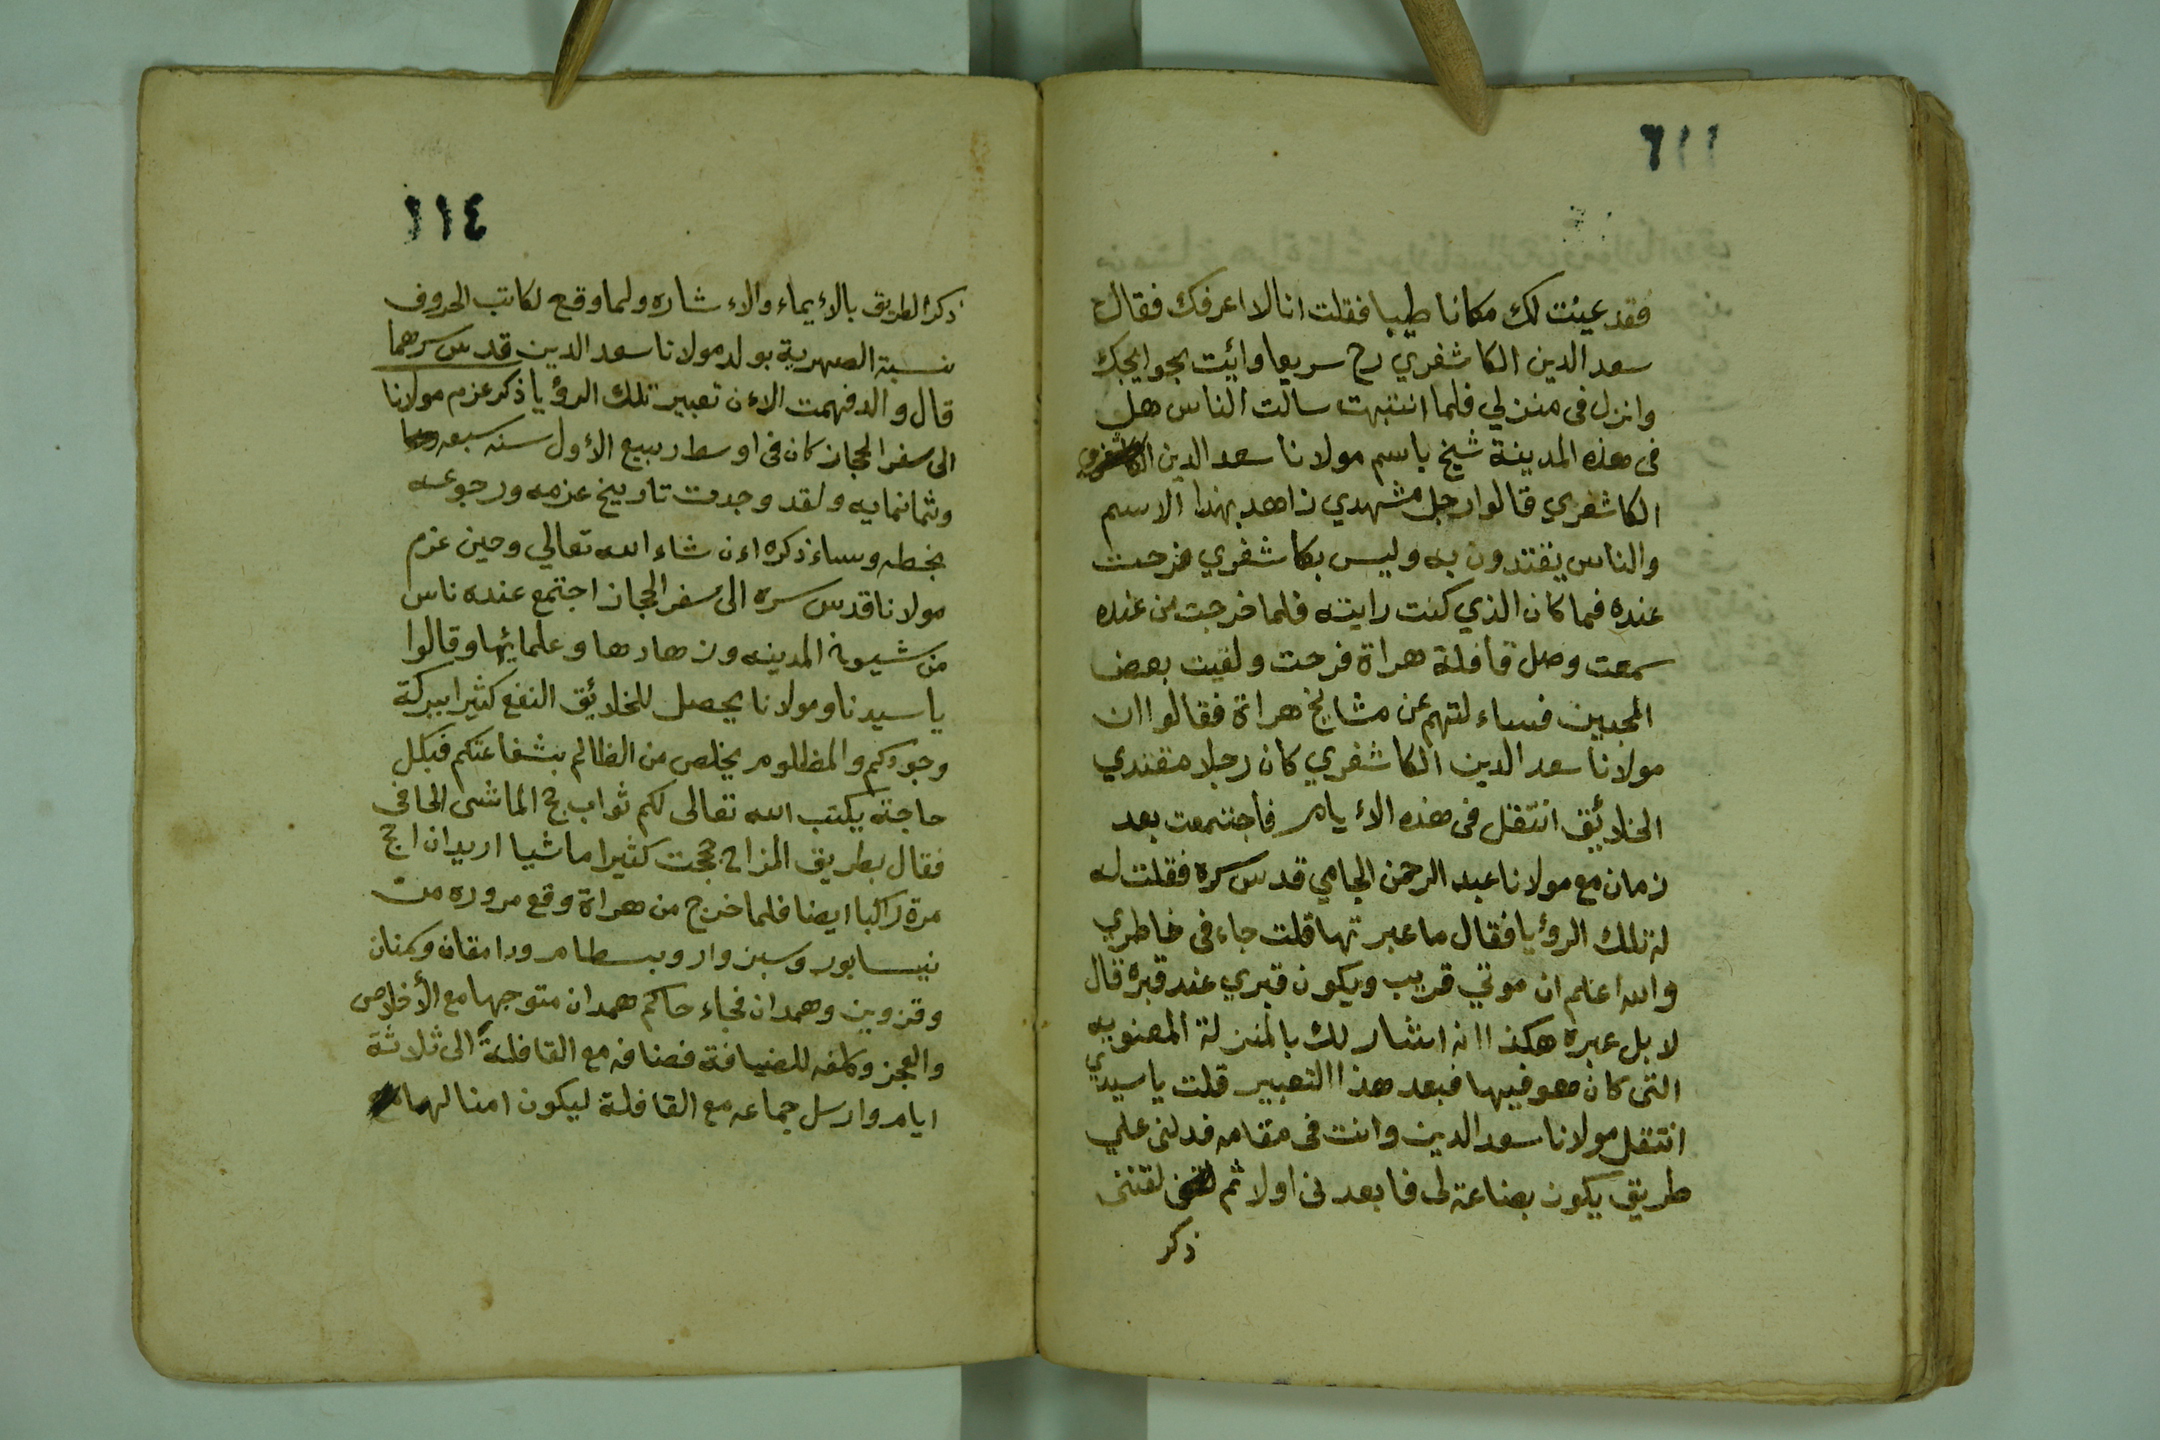 ١١٦
فقد عينت لك مكانا طيبا فقلت انا لا اعرفك فقال
سعد الدين الكاشغري رح سريعا وائت بحوايجك
وانزل فى منزلي فلما انتبهت سالت الناس هل
فى هذه المدينة شيخ باسم مولانا سعد الدين
الكاشغري قالوا رجل مشهدي زاهد بهذا الاسم
والناس يقتدون به وليس بكاشغري فرحت
عنده فما كان الذي كنت رايته فلما خرجت من عنده
سمعت وصل قافلة هراة فرحت ولقيت بعض
المحبين فساء لتهم عن مشايخ هراة فقالوا ان
مولانا سعد الدين الكاشغري كان رجلا مقتدي
الخلائق انتقل فى هذه الاءيام فاجتمعت بعد
زمان مع مولانا عبد الرحمن الجامي قدس سره فقلت له
له تلك الرؤيا فقال ما عبرتها قلت جاء فى خاطري
والله اعلم ان موتي قريب ويكون قبري عند قبره قال
لا بل عبره هكذا انه اشار لك بالمنزلة المعنويه
التى كان هو فيها فبعد هذا التعبير قلت يا سيدي
انتقل مولانا سعد الدين وانت فى مقامه فدلنى علي
طريق يكون بضاعة لى فابعدنى اولا ثم لقننى
ذكر
١١٤
ذكر الطريق بالاءيماء والاءشاره ولما وقع لكاتب الحروف
نسبة الصهرية بولد مولانا سعد الدين قدس سرهما
قال والد فهمت الاءن تعبير تلك الرؤيا ذكر عزم مولانا
الى سفر الحجاز كان فى اوسط ربيع الأول سنه سبعه
وثمانمايه ولقد وجدت تاريخ عزمه ورجوعه
بخطه وساءذكره اءن شاء الله تعالي وحين عزم
مولانا قدس سره الى سفر الحجاز اجتمع عنده ناس
من شيوخ المدينه وزهادها وعلمائها وقالوا
يا سيدنا ومولانا يحصل للخلائق النفع كثيرا ببركة
وجودكم والمظلوم يخلص من الظالم بشفاعتكم فبكل
حاجة يكتب الله تعالى لكم ثواب حج الماشى الحافى
فقال بطريق المزاح حججت كثيرا ماشيا اريد ان احج
مرة راكبا ايضا فلما خرج من هراة وقع مروره من
نيسابور وسبزوار وبسطام ودامقان وسمنان
وقزوين وهمدان فجاء حاكم همدان متوجها مع الأخلاص
والعجز وكلفه للضيافة فضافه مع القافلة الى ثلاثة
ايام وارسل جماعه مع القافلة ليكون امنا لهما